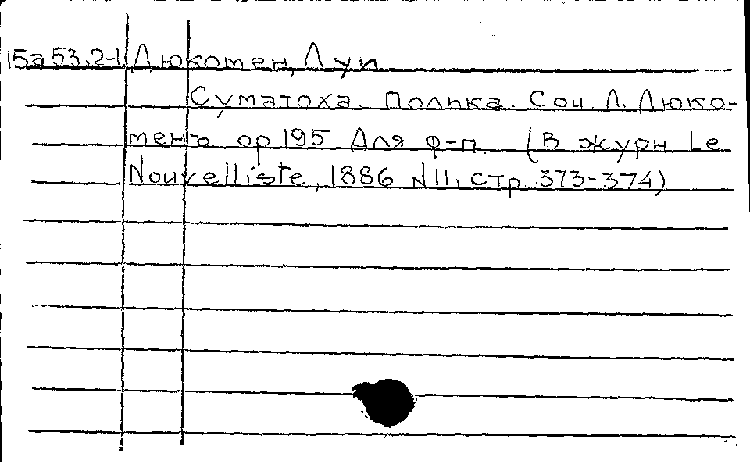 15а53.2-1 Дюкомен, Луи
Суматоха. Полька. Соч. Л. Дюко-
мена ор 195 Для ф-п. (В журн Le
Nouvelliste, 1886 N11, стр 373-374)